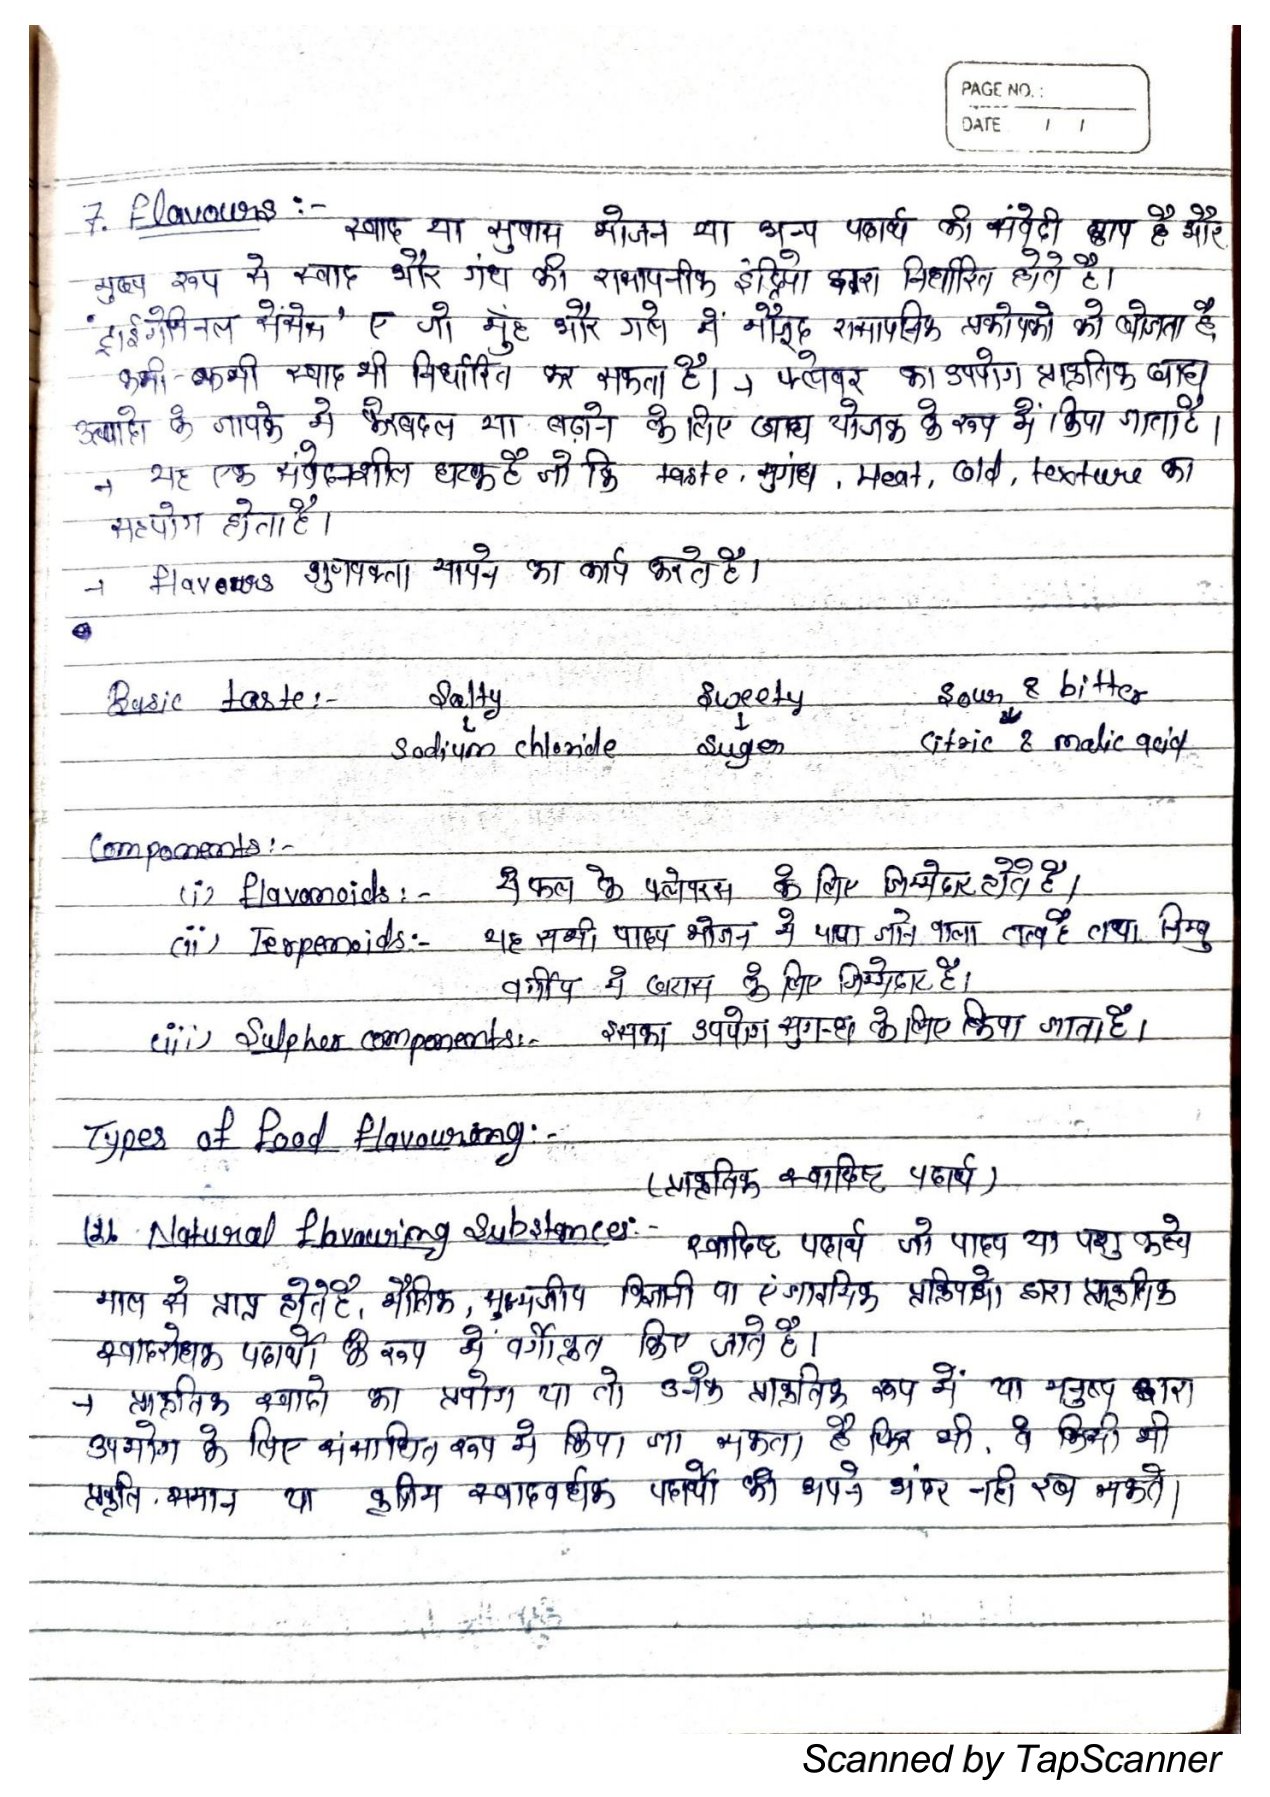 PAGE NO. :
DATE / /
7. Flavours :-
स्वाद या सुवास भोजन या अन्य पदार्थ की संवेदी छाप है और
मुख्य रूप से स्वाद और गंध की रासायनीक इंद्रियो द्वारा निर्धारित होते है।
'ट्राईगेमिनल सेंसेस' ए जो मुंह और गले में मौजूद रासायनिक प्रकोपको को खोजता है
कभी-कभी स्वाद भी निर्धारित कर सकता है। → फ्लेवर का उपयोग प्राकृतिक खाद्य
उत्पादो के जायके मे फेरबदल या बढ़ाने के लिए खाद्य योजक के रूप में किया जाता है।
→ यह एक संवेदनशील घटक है जो कि taste, सुगंध, Heat, Cold, texture का
सहयोग होता है।
→ flavours गुणवक्ता मापने का कार्य करते है।
Basic taste:- Salty Sweety Sour & bitter
↓ ↓ ↓
Sodium chloride Suger Citric & malic acid
Components:-
(i) flavonoids:- ये फल के फ्लेवरस के लिए जिम्मेदार होते है।
(ii) Terpenoids:- यह सभी पादप भोजन मे पाया जाने वाला तत्व है तथा निम्बु
वर्गीय मे खटास के लिए जिम्मेदार है।
(iii) Sulpher components:- इसका उपयोग सुगन्ध के लिए किया जाता है।
Types of food flavouring:-
(प्राकृतिक स्वादिष्ट पदार्थ)
Natural flavouring Substances:-
स्वादिष्ट पदार्थ जो पादप या पशु कच्चे
माल से प्राप्त होते है, भौतिक, सुक्ष्मजीव विज्ञानी या एंजाइमिक प्रक्रियाओ द्वारा प्राकृतिक
स्वादरोधक पदार्थो के रूप में वर्गीकृत किए जाते है।
→ प्राकृतिक स्वादो का प्रयोग या तो उनके प्राकृतिक रूप में या मनुष्य द्वारा
उपभोग के लिए संसाधित रूप मे किया जा सकता है फिर भी, वे किसी भी
प्रकृति समान या कृत्रिम स्वादवर्धक पदार्थो को अपने अंदर नही रख सकते।
Scanned by TapScanner